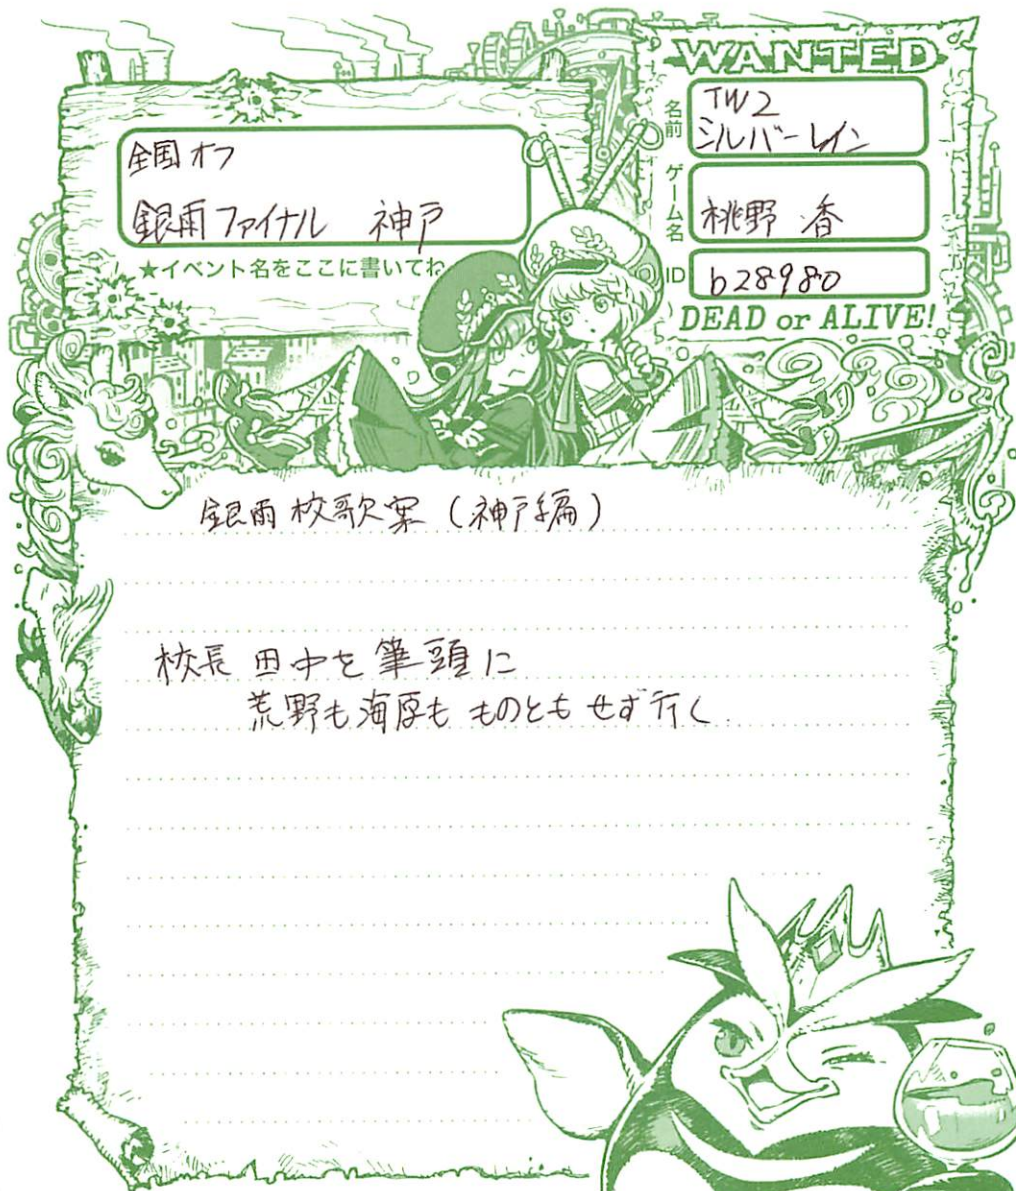 全国オフ
銀雨ファイナル 神戸
★イベント名をここに書いてね
WANTED
名前
TW2
シルバーレイン
ゲーム名
桃野 香
ID
b28980
DEAD or ALIVE!
銀雨校歌案(神戸編)
校長 田中を筆頭に
荒野も海原も ものともせず行く